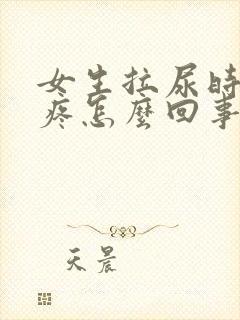 女生拉尿时
疼怎麼回事
天晨